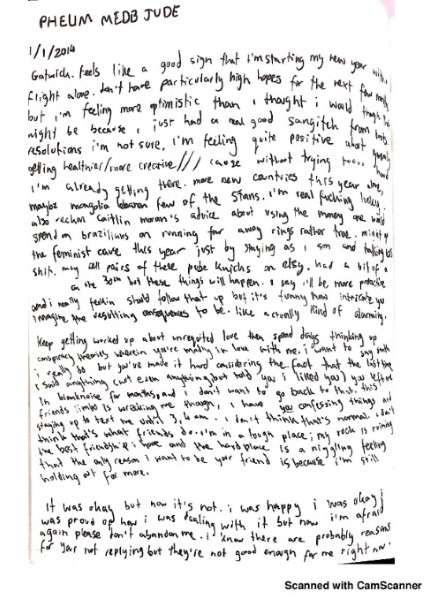 PHELIM MEDB JUDE
1/1/2014
Gatwick. Feels like a good sign that i'm starting my new year with a
flight alone. don't have particularly high hopes for the next few months
but i'm feeling more optimistic than i thought i would though
might be because i just had a real good sangitch from boots
resolutions i'm not sure. i'm feeling quite positive about
getting healthier/more creative/// cause without trying too hard
i'm already getting there. more new countries this year alone,
maybe mongolia lebanon few of the stans. i'm real fucking lucky.
also reckon caitlin moran's advice about using the money one would
spend on brazilians on running far away rings rather true. might
the feminist cause this year just by staying as i am and
shit. may all pairs of these pube knicks on etsy. had a bit of a
on the 30th but these things will happen. i say i'll be more proactive
and i really feckin should follow that up but it's funny how intricate you
imagine the resulting consequences to be. like actually kind of alarming.
Keep getting worked up about unrequited love then spend days thinking up
conspiracy theories wherein you're madly in love with me. i want to say
i really do but you've made it hard considering the fact that the last time
i said anything (not even anything, but told you i liked you) you left me
in blanknoise for months, and i don't want to go back to that. this
friends limbo is wrecking me though, i have you confessing things and
staying up to text me until 3, 4 am. i don't think that's normal. i don't
think that's what friends do. i'm in a tough place; my rock is ruining
the best friendship i have and the hard place is a niggling feeling
that the only reason i want to be your friend is because i'm still
holding out for more.
It was okay but now it's not. i was happy i was okay i
was proud of how i was dealing with it but now i'm afraid
again please don't abandon me. i know there are probably reasons
for your not replying but they're not good enough for me right now.
Scanned with CamScanner